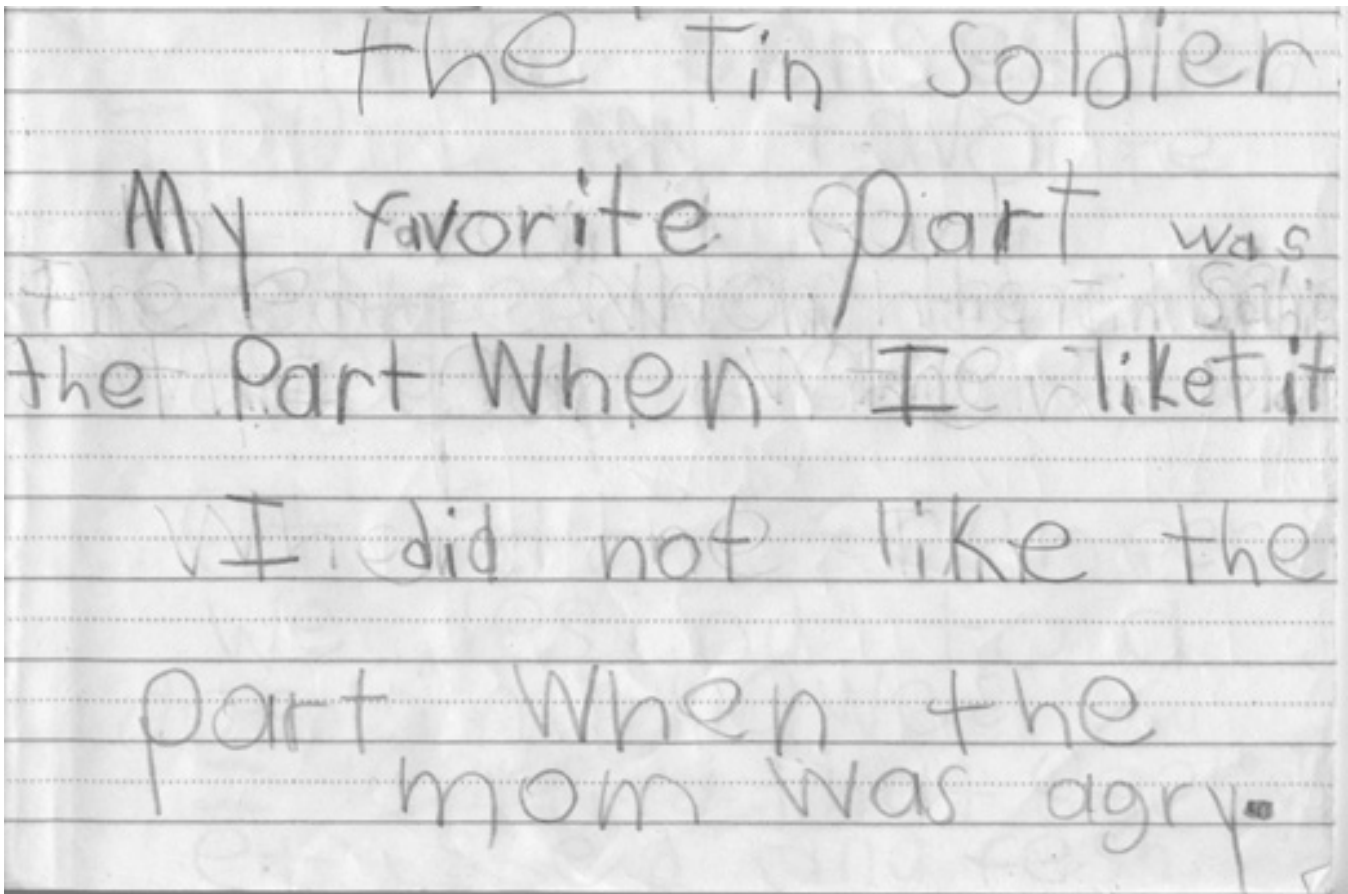 the Tin Soldier
My favorite part was
the Part When I liket it
I did not like the
part When the
mom was agry.